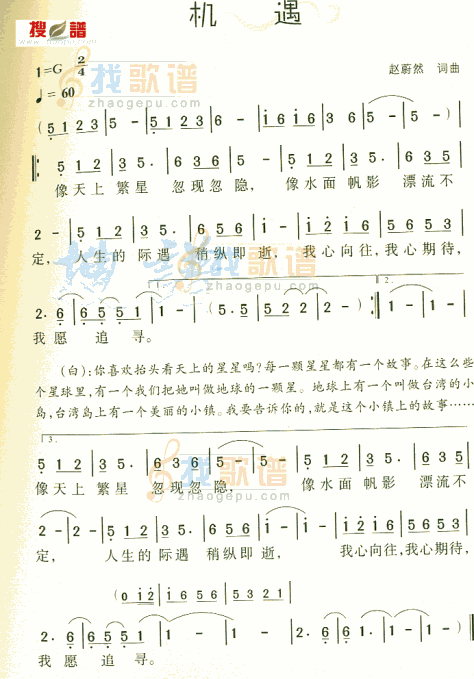 搜谱
机 遇
1=G 2/4
赵蔚然 词曲
♩=60
找歌谱
zhaogepu.com
( 5 1 2 3 | 5 - | 5 1 2 3 | 6 - | i 6 i 6 | 3 - | 6 2 6 | 5 - | 5 - )
5 1 2 | 3 5 · | 6 3 6 | 5 - | 5 1 2 | 3 5 · | 6 3 5
像天上 繁星 忽现忽隐， 像水面 帆影 漂流不
2 - | 5 1 2 | 3 5 · | 6 5 6 | i - | i 2 i 6 | 5 6 5 3
定， 人生的 际遇 稍纵即 逝， 我心向往，我心期待，
搜谱 找歌谱
2 · 6 | 6 5 5 1 | 1 - | 1 - | ( 5 · 5 | 5 2 2 | 2 - ) | 2. 1 - | 1 -
我愿 追 寻。
(白)：你喜欢抬头看天上的星星吗？每一颗星星都有一个故事。在这么些
个星球里，有一个我们把她叫做地球的一颗星。地球上有一个叫做台湾的小
岛，台湾岛上有一个美丽的小镇。我要告诉你的，就是这个小镇上的故事……
3.
5 1 2 | 3 5 · | 6 3 6 | 5 - | 5 - | 5 1 2 | 3 5 · | 6 3 5
像天上 繁星 忽现忽隐， 像水面 帆影 漂流不
找歌谱
zhaogepu.com
2 - | 2 - | 5 1 2 | 3 5 · | 6 5 6 | i - | i - | i 2 i 6 | 5 6 5 3
定， 人生的 际遇 稍纵即 逝， 我心向往，我心期待，
( 0 i 2 | i 6 5 6 | 5 3 5 1 |
2 · 6 | 6 5 5 1 | 1 - | 1 - | 2 · 6 | 6 1 · | 1 - | 1 - )
我愿 追 寻。